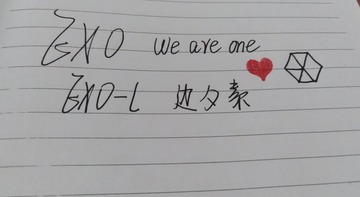 EXO We are one
EXO-L 边夕素